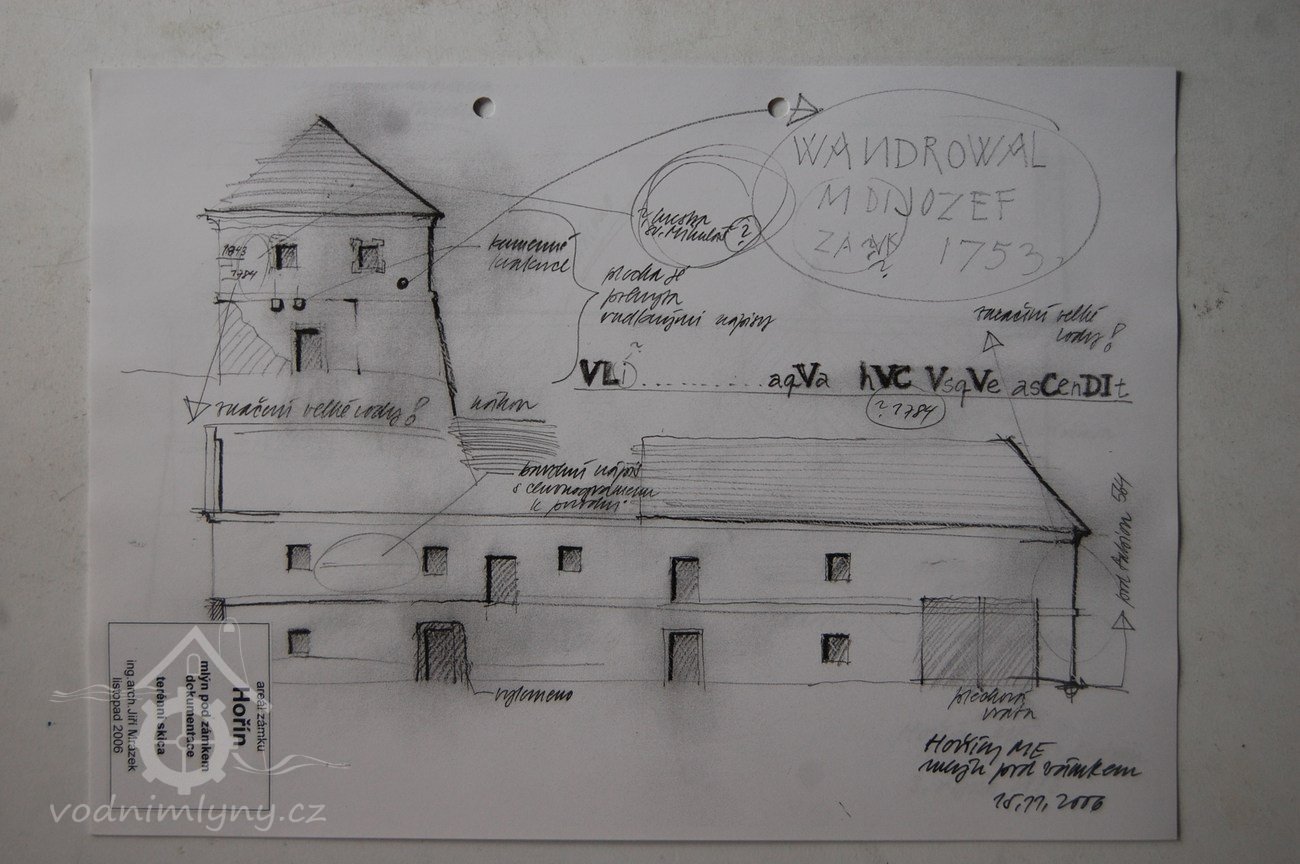 WANDROWAL
M DIJOZEF
1753
sv. Mikuláš ?
1843
1784
kamenné
plocha je
vudkovými nápisy
značení velké
vody!
VLI ............ aqVa hVC VsqVe asCenDIt
? 1784
značení velké vody!
s chronogramem
k povodni
vylomeno
plechová
vrata
Hořín, ME
mlýn pod zámkem
15.11.2006
areál zámku
Hořín
mlýn pod zámkem
dokumentace
terénní skica
ing.arch.Jiří Mrázek
listopad 2006
vodnimlyny.cz